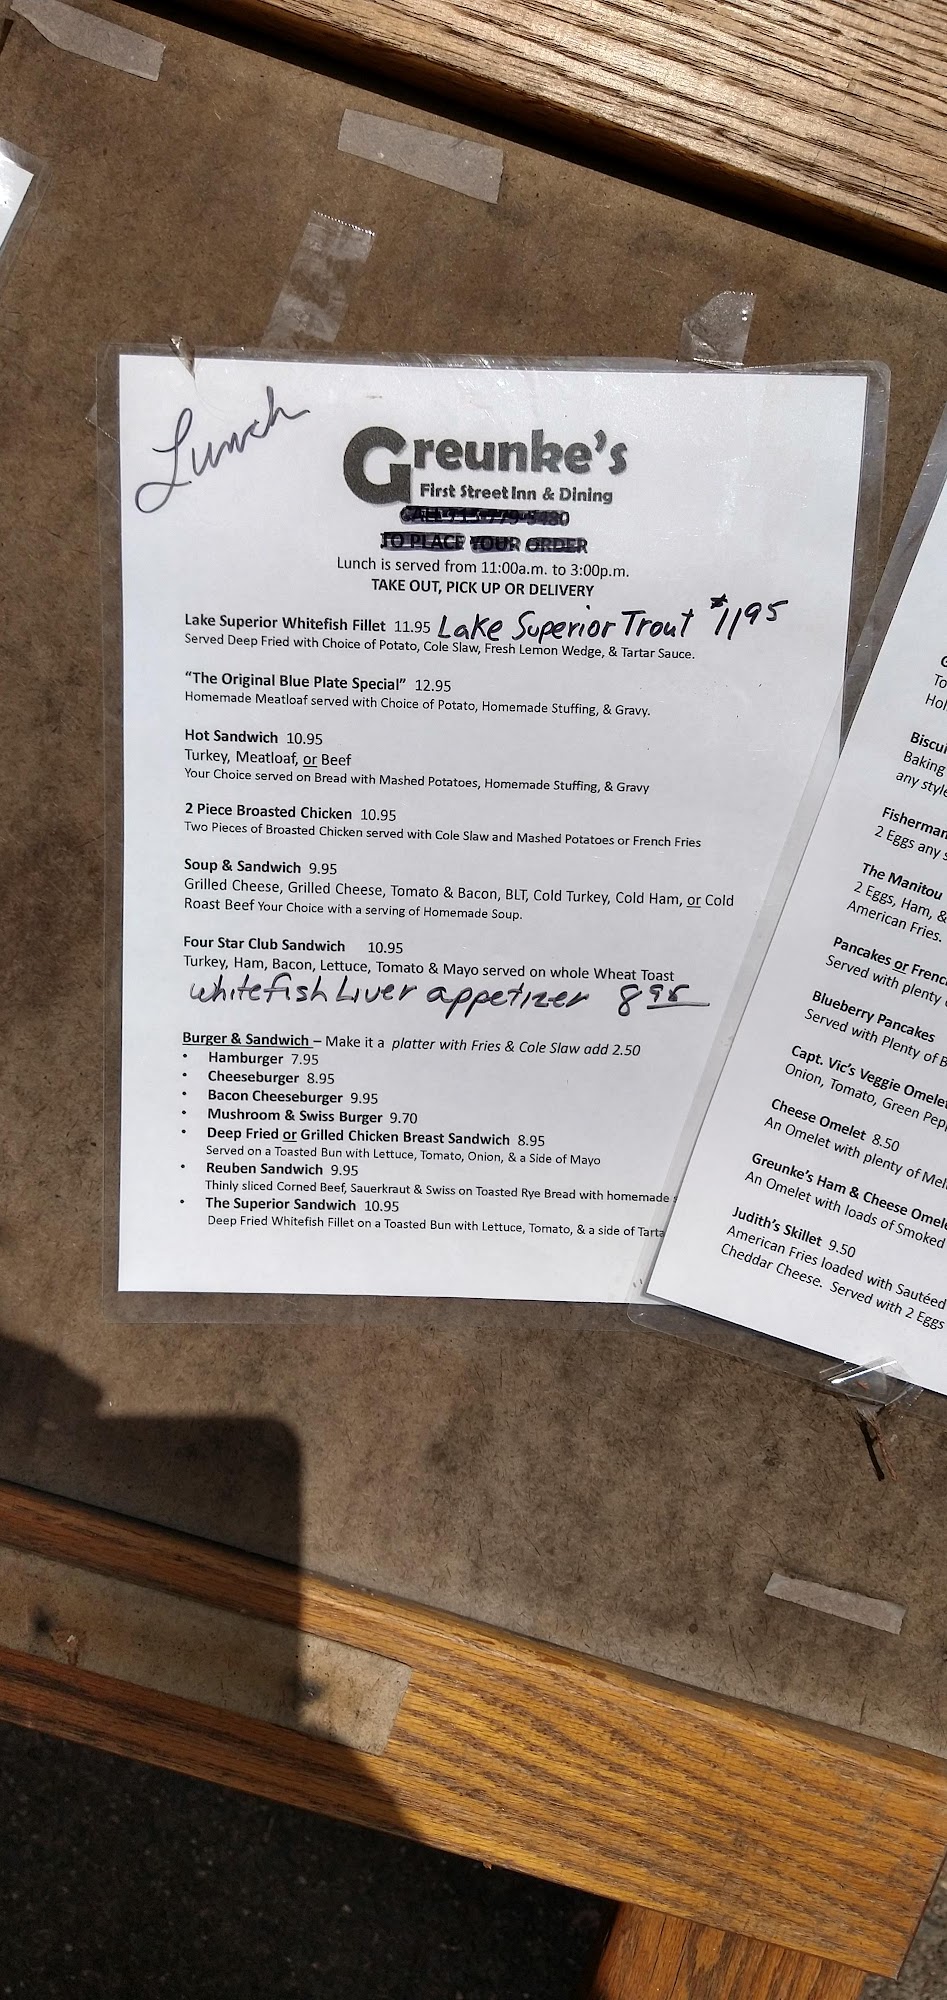 Lunch
Greunke's
First Street Inn & Dining
TO PLACE YOUR ORDER
Lunch is served from 11:00a.m. to 3:00p.m.
TAKE OUT, PICK UP OR DELIVERY
Lake Superior Whitefish Fillet 11.95 Lake Superior Trout $11 95
Served Deep Fried with Choice of Potato, Cole Slaw, Fresh Lemon Wedge, & Tartar Sauce.
“The Original Blue Plate Special” 12.95
Homemade Meatloaf served with Choice of Potato, Homemade Stuffing, & Gravy.
Hot Sandwich 10.95
Turkey, Meatloaf, or Beef
Your Choice served on Bread with Mashed Potatoes, Homemade Stuffing, & Gravy
2 Piece Broasted Chicken 10.95
Two Pieces of Broasted Chicken served with Cole Slaw and Mashed Potatoes or French Fries
Soup & Sandwich 9.95
Grilled Cheese, Grilled Cheese, Tomato & Bacon, BLT, Cold Turkey, Cold Ham, or Cold
Roast Beef Your Choice with a serving of Homemade Soup.
Four Star Club Sandwich 10.95
Turkey, Ham, Bacon, Lettuce, Tomato & Mayo served on whole Wheat Toast
Whitefish Liver appetizer 8 95
Burger & Sandwich – Make it a platter with Fries & Cole Slaw add 2.50
• Hamburger 7.95
• Cheeseburger 8.95
• Bacon Cheeseburger 9.95
• Mushroom & Swiss Burger 9.70
• Deep Fried or Grilled Chicken Breast Sandwich 8.95
Served on a Toasted Bun with Lettuce, Tomato, Onion, & a Side of Mayo
• Reuben Sandwich 9.95
Thinly sliced Corned Beef, Sauerkraut & Swiss on Toasted Rye Bread with homemade
• The Superior Sandwich 10.95
Deep Fried Whitefish Fillet on a Toasted Bun with Lettuce, Tomato, & a side of Tarta
G
To
Hol
Biscui
Baking
any style
Fisherman
2 Eggs any s
The Manitou
2 Eggs, Ham, &
American Fries.
Pancakes or Frenc
Served with plenty
Blueberry Pancakes
Served with Plenty of B
Capt. Vic's Veggie Omelet
Onion, Tomato, Green Pep
Cheese Omelet 8.50
An Omelet with plenty of Mel
Greunke's Ham & Cheese Omele
An Omelet with loads of Smoked
Judith's Skillet 9.50
American Fries loaded with Sautéed
Cheddar Cheese. Served with 2 Eggs